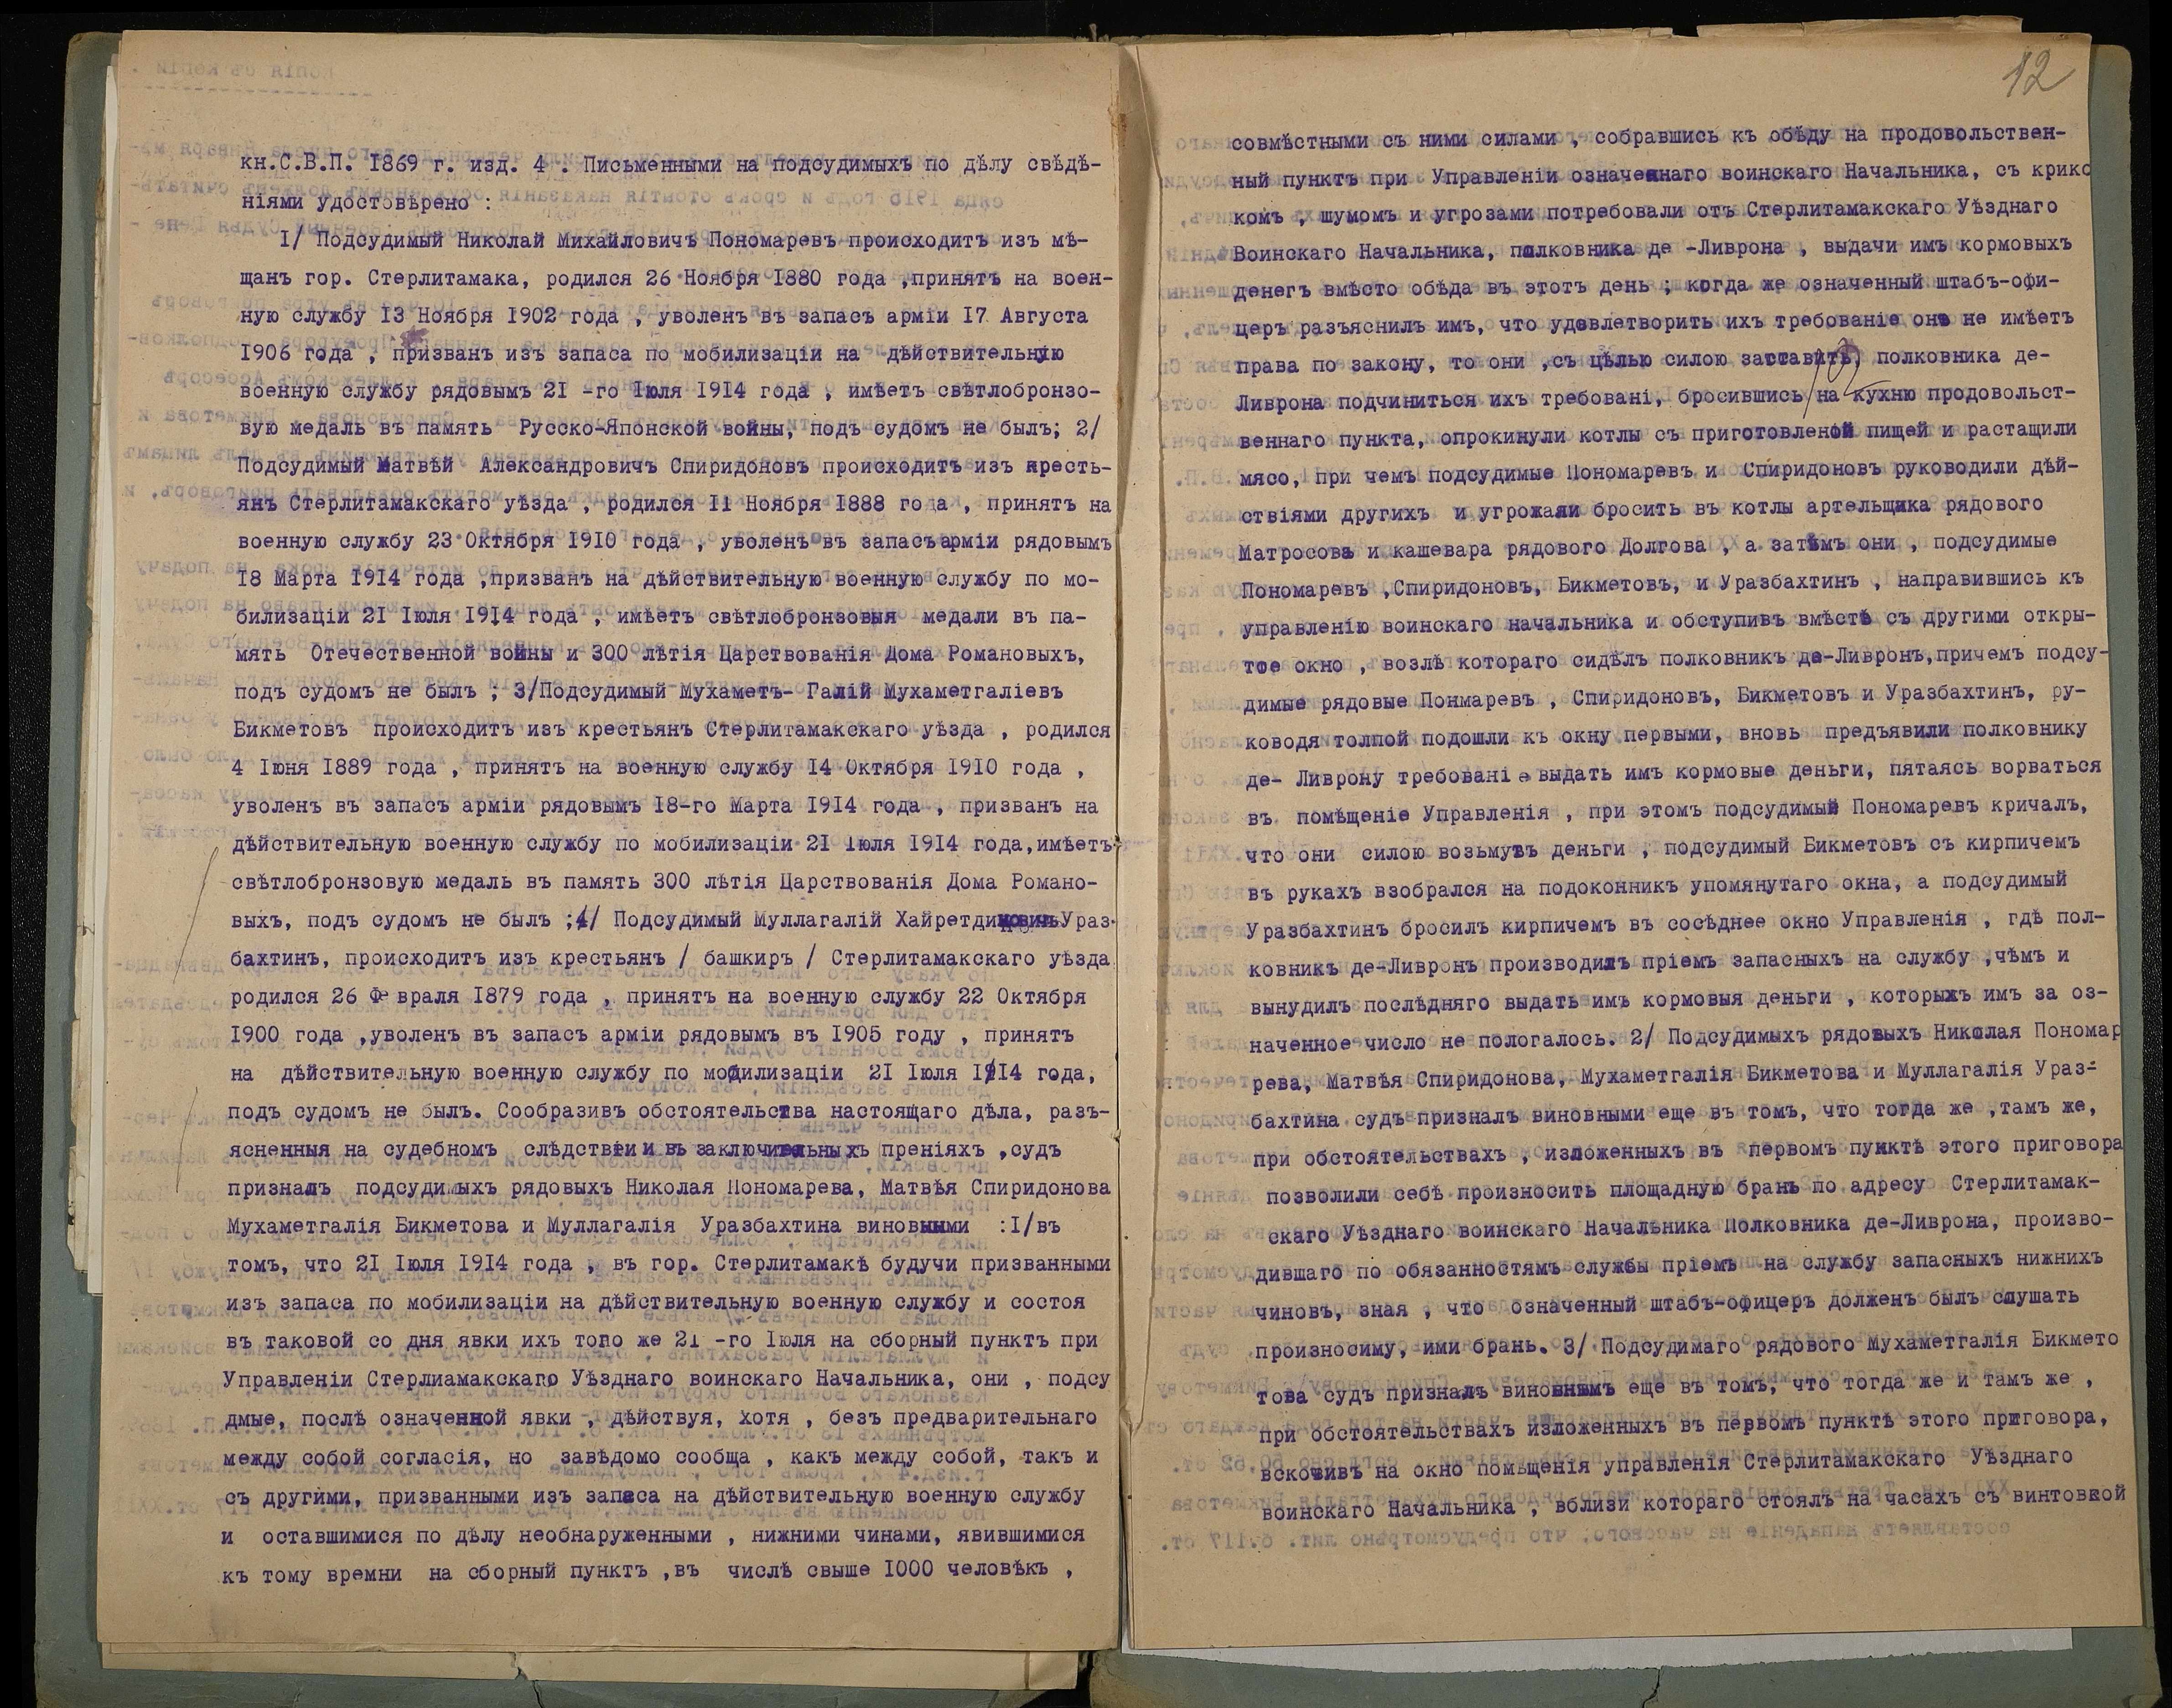 кн.С.В.П. 1869 г. изд. 4 . Письменными на подсудимыхъ по дѣлу свѣдѣ-
ніями удостовѣрено :
I/ Подсудимый Николай Михайловичъ Пономаревъ происходитъ изъ мѣ-
щанъ гор. Стерлитамака, родился 26 Ноября 1880 года ,принятъ на воен-
ную службу I3 Ноября I902 года , уволенъ въ запасъ арміи I7 Августа
I906 года , призванъ изъ запаса по мобилизаціи на дѣйствительную
военную службу рядовымъ 2I -го Іюля I9I4 года , имѣетъ свѣтлобронзо-
вую медаль въ память Русско-Японской войны, подъ судомъ не былъ; 2/
Подсудимый Матвѣй Александровичъ Спиридоновъ происходитъ изъ кресть-
янъ Стерлитамакскаго уѣзда , родился II Ноября I888 года , принятъ на
военную службу 23 Октября I9I0 года , уволенъ въ запасъ арміи рядовымъ
I8 Марта I9I4 года ,призванъ на дѣйствительную военную службу по мо-
билизаціи 2I Іюля I9I4 года , имѣетъ свѣтлобронзовыя медали въ па-
мять Отечественной войны и 300 лѣтія Царствованія Дома Романовыхъ,
подъ судомъ не былъ ; 3/Подсудимый Мухаметъ- Галій Мухаметгаліевъ
Бикметовъ происходитъ изъ крестьянъ Стерлитамакскаго уѣзда , родился
4 Іюня I889 года , принятъ на военную службу I4 Октября I9I0 года ,
уволенъ въ запасъ арміи рядовымъ I8-го Марта I9I4 года , призванъ на
дѣйствительную военную службу по мобилизаціи 2I Іюля I9I4 года,имѣетъ
свѣтлобронзовую медаль въ память 300 лѣтія Царствованія Дома Романо-
выхъ, подъ судомъ не былъ ;4/ Подсудимый Муллагалій Хайретдиновичъ Ураз-
бахтинъ, происходитъ изъ крестьянъ / башкиръ / Стерлитамакскаго уѣзда
родился 26 Февраля I879 года , принятъ на военную службу 22 Октября
I900 года ,уволенъ въ запасъ арміи рядовымъ въ I905 году , принятъ
на дѣйствительную военную службу по мобилизаціи 2I Іюля I9I4 года,
подъ судомъ не былъ. Сообразивъ обстоятельства настоящаго дѣла, разъ-
ясненныя на судебномъ слѣдствіи и въ заключительныхъ преніяхъ ,судъ
призналъ подсудимыхъ рядовыхъ Николая Пономарева, Матвѣя Спиридонова
Мухаметгалія Бикметова и Муллагалія Уразбахтина виновными :I/въ
томъ, что 2I Іюля I9I4 года , въ гор. Стерлитамакѣ будучи призванными
изъ запаса по мобилизаціи на дѣйствительную военную службу и состоя
въ таковой со дня явки ихъ того же 2I -го Іюля на сборный пунктъ при
Управленіи Стерлиамакскаго Уѣзднаго воинскаго Начальника, они , подсу
дмые, послѣ означенной явки , дѣйствуя, хотя , безъ предварительнаго
между собой согласія, но завѣдомо сообща , какъ между собой, такъ и
съ другими, призванными изъ запаса на дѣйствительную военную службу
и оставшимися по дѣлу необнаруженными , нижними чинами, явившимися
къ тому времни на сборный пунктъ ,въ числѣ свыше I000 человѣкъ ,
12
совмѣстными съ ними силами , собравшись къ обѣду на продовольствен-
ный пунктъ при Управленіи означеннаго воинскаго Начальника, съ крико
комъ , шумомъ и угрозами потребовали отъ Стерлитамакскаго Уѣзднаго
Воинскаго Начальника, полковника де -Ливрона , выдачи имъ кормовыхъ
денегъ вмѣсто обѣда въ этотъ день ; когда же означенный штабъ-офи-
церъ разъяснилъ имъ, что удовлетворить ихъ требованіе онъ не имѣетъ
права по закону, то они ,съ цѣлью силою заставить, полковника де-
Ливрона подчиниться ихъ требовані, бросившись на кухню продовольст-
веннаго пункта, опрокинули котлы съ приготовленой пищей и растащили
мясо, при чемъ подсудимые Пономаревъ и Спиридоновъ руководили дѣй-
ствіями другихъ и угрожали бросить въ котлы артельщика рядового
Матросова и кашевара рядового Долгова , а затѣмъ они , подсудимые
Пономаревъ ,Спиридоновъ, Бикметовъ, и Уразбахтинъ , направившись къ
управленію воинскаго начальника и обступивъ вмѣстѣ съ другими откры-
тое окно , возлѣ котораго сидѣлъ полковникъ де-Ливронъ,причемъ подсу-
димые рядовые Понмаревъ , Спиридоновъ, Бикметовъ и Уразбахтинъ, ру-
ководя толпой подошли къ окну первыми, вновь предъявили полковнику
де- Ливрону требованіе выдать имъ кормовые деньги, пятаясь ворваться
въ помѣщеніе Управленія , при этомъ подсудимый Пономаревъ кричалъ,
что они силою возьмутъ деньги , подсудимый Бикметовъ съ кирпичемъ
въ рукахъ взобрался на подоконникъ упомянутаго окна, а подсудимый
Уразбахтинъ бросилъ кирпичемъ въ сосѣднее окно Управленія , гдѣ пол-
ковникъ де-Ливронъ производилъ пріемъ запасныхъ на службу ,чѣмъ и
вынудилъ послѣдняго выдать имъ кормовыя деньги , которыхъ имъ за оз-
наченное число не пологалось. 2/ Подсудимыхъ рядовыхъ Николая Пономар
рева, Матвѣя Спиридонова, Мухаметгалія Бикметова и Муллагалія Ураз-
бахтина судъ призналъ виновными еще въ томъ, что тогда же ,тамъ же,
при обстоятельствахъ , изложенныхъ въ первомъ пунктѣ этого приговора
позволили себѣ произносить площадную брань по адресу Стерлитамак-
скаго Уѣзднаго воинскаго Начальника Полковника де-Ливрона, произво-
дившаго по обязанностямъ службы пріемъ на службу запасныхъ нижнихъ
чиновъ, зная , что означенный штабъ-офицеръ долженъ былъ слушать
произносиму, ими брань. 3/ Подсудимаго рядового Мухаметгалія Бикмето
това судъ призналъ виновнымъ еще въ томъ, что тогда же и тамъ же ,
при обстоятельствахъ изложенныхъ въ первомъ пунктѣ этого приговора,
вскочивъ на окно помѣщенія управленія Стерлитамакскаго Уѣзднаго
воинскаго Начальника , вблизи котораго стоялъ на часахъ съ винтовкой